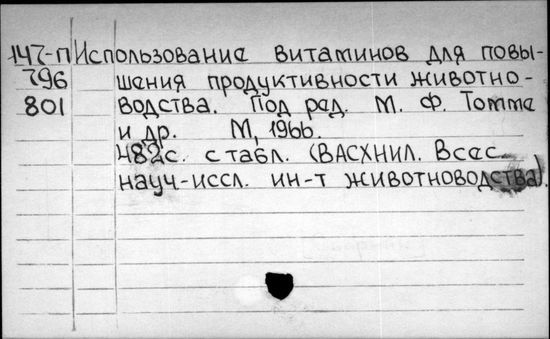 147-п Использование витаминов для повы-
796 шения продуктивности животно-
801 водства. Под ред. М. Ф. Томмэ
и др. М, 1966.
482с. с табл. (ВАСХНИЛ. Всес.
науч-иссл. ин-т животноводства).